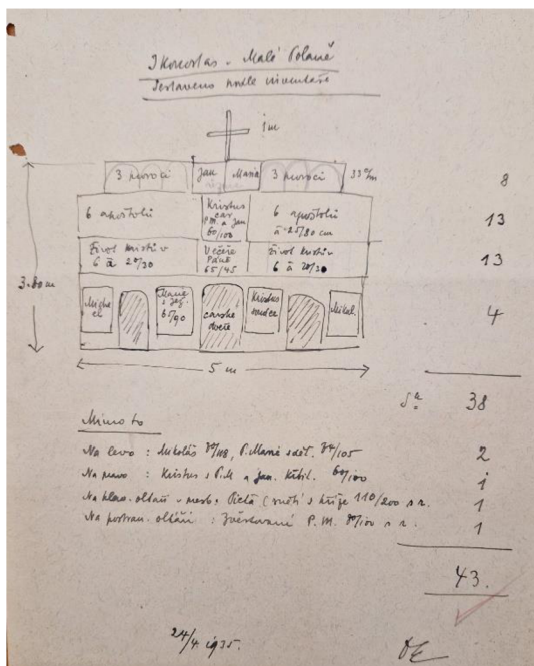 Ikonostas v Malé Polaně
Sestaveno podle inventáře
1m
3 proroci Jan Maria 3 proroci 33 cm 8
6 apoštolů Kristus car P.M. a Jan 60/100 6 apoštolů à 25/80 cm 13
Život Kristův 6 à 20/30 Večeře Páně 65/45 Život Kristův 6 à 20/30 13
3.80m
Michael Marie s Jež. 65/90 carské dveře Kristus Mikul. 4
5 m
Sa 38
Mimo to
Na levo : Mikoláš /118, P. Maria s dět. /105 2
Na pravo : Kristus s P.M. a Jan. Křtit. 60/100 1
Na hlav. oltáři v : Pietà (snětí s kříže 110/200 s r. 1
Na postran. oltáři : Zvěstování P. M. /100 s r. 1
43.
24/4 1935.